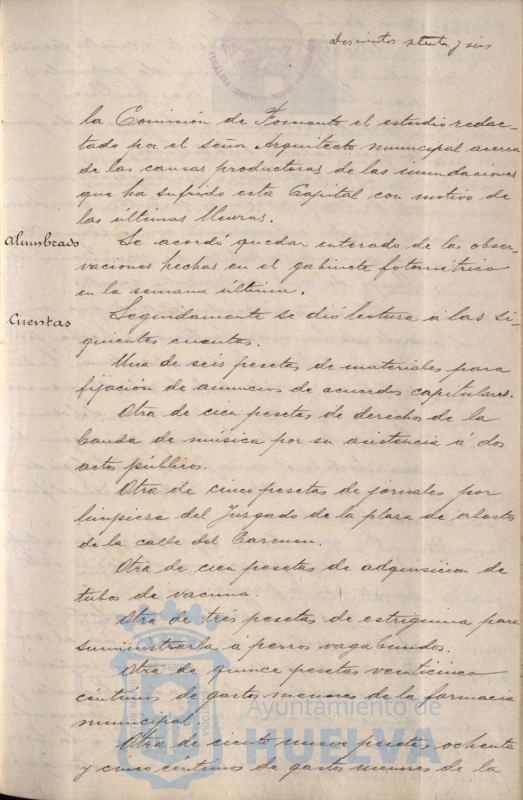 Doscientos setenta y seis
la Comisión de Fomento el estudio redac-
tado por el señor Arquitecto municipal acerca
de las causas productoras de las inundaciones
que ha sufrido esta Capital con motivo de
las últimas lluvias.
Alumbrado
Se acordó quedar enterado de las obser-
vaciones hechas en el gabinete fotométrico
en la semana última.
Cuentas
Seguidamente se dió lectura á las si-
guientes cuentas.
Una de seis pesetas de materiales para
fijación de anuncios de acuerdos capitulares.
Otra de cien pesetas de derechos de la
banda de música por su asistencia á dos
actos públicos.
Otra de cinco pesetas de jornales por
limpieza del Juzgado de la plaza de abastos
de la calle del Carmen.
Otra de cien pesetas de adquisicion de
tubos de vacuna.
Otra de tres pesetas de estrignina para
suministrarla á perros vagabundos.
Otra de quince pesetas venticinco
céntimos de gastos menores de la farmacia
municipal.
Otra de ciento nueve pesetas ochenta
y cinco céntimos de gastos menores de la
Ayuntamiento de
HUELVA